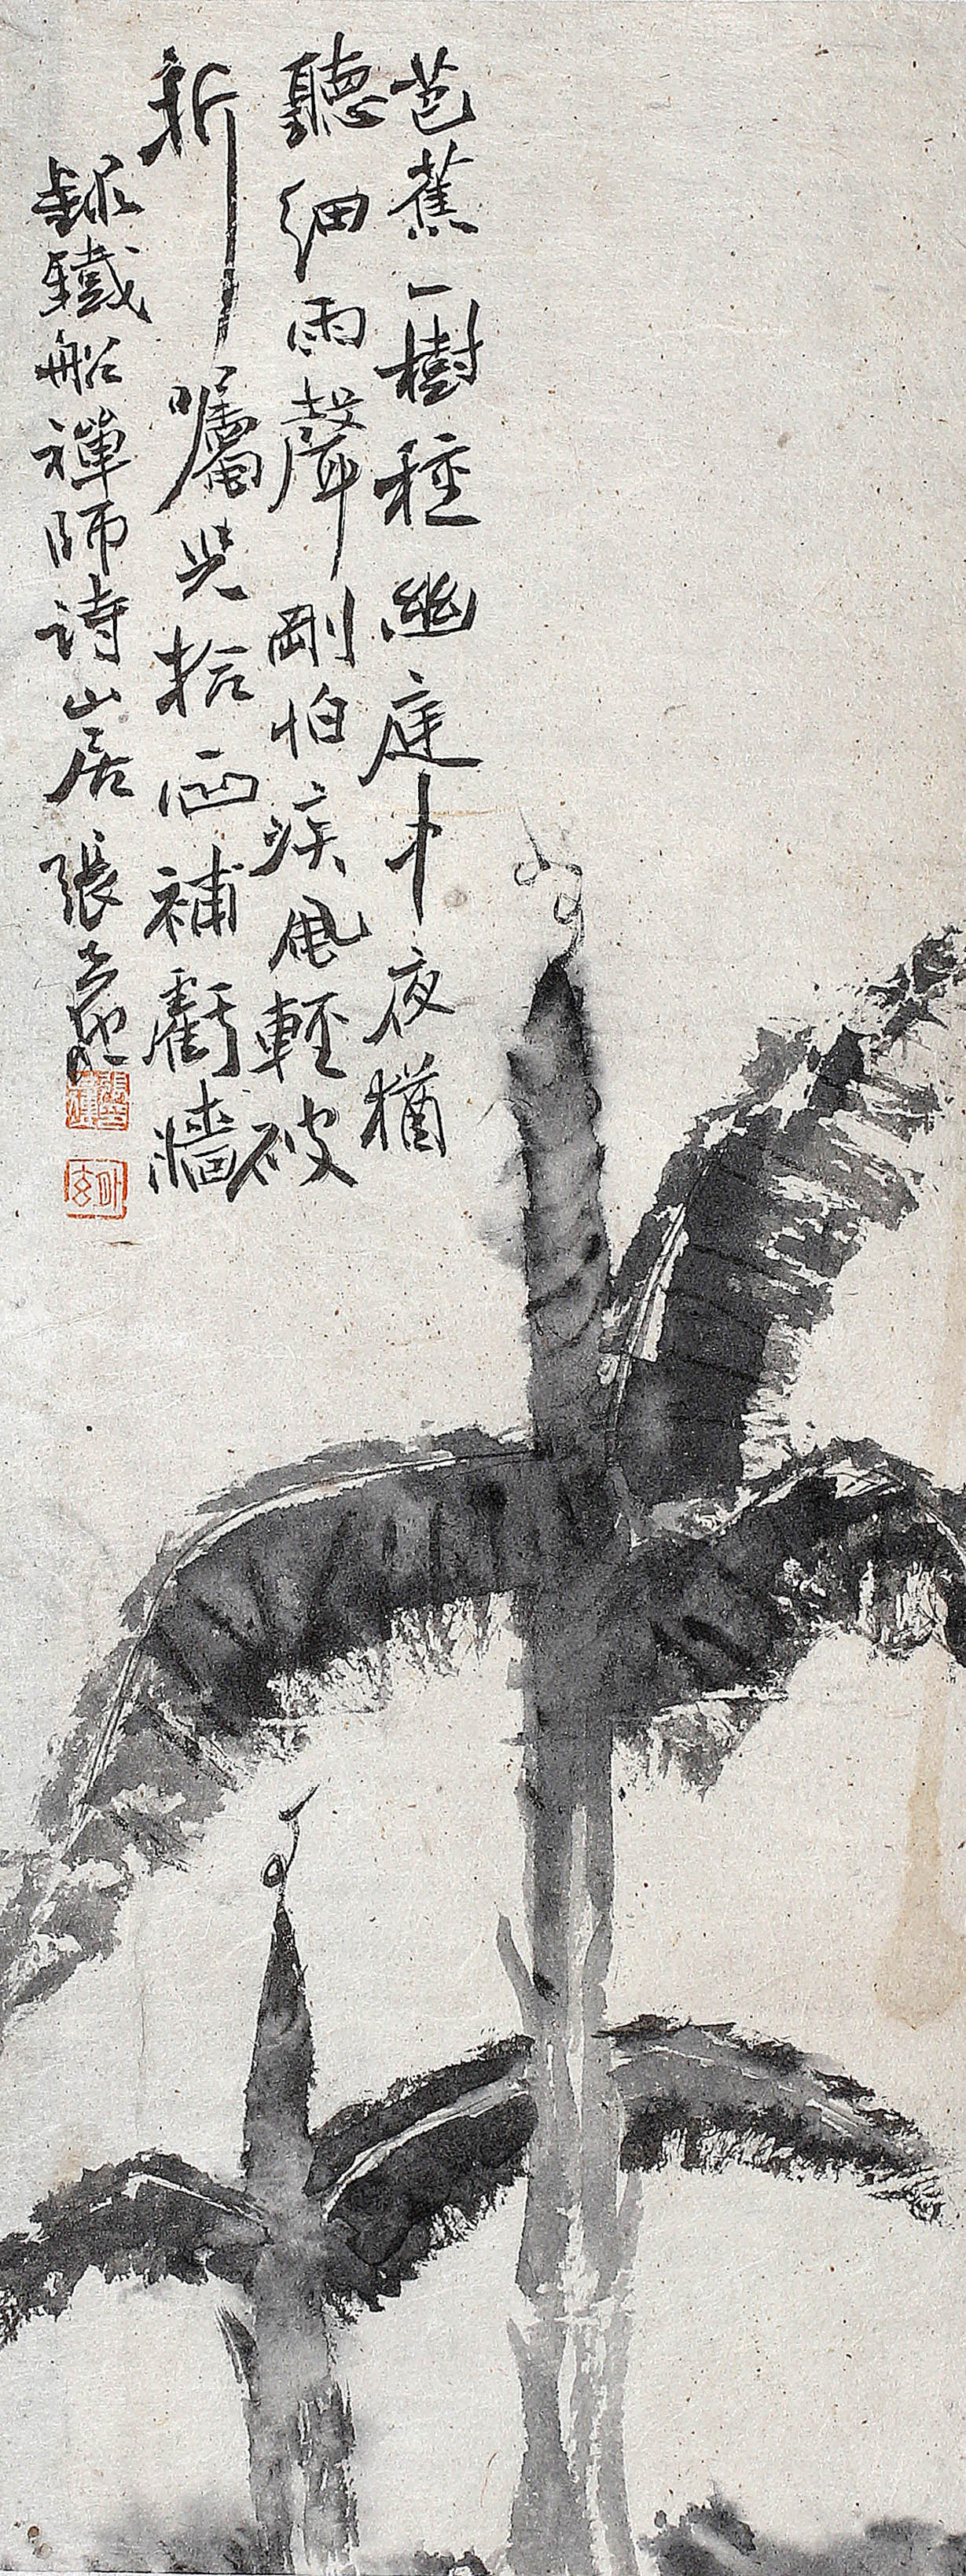 芭蕉一樹種幽庭中夜猶
聽細雨聲剛怕疾風輕破
新囑兒拾洒補虧牆
錄鐵船禪師诗山居張